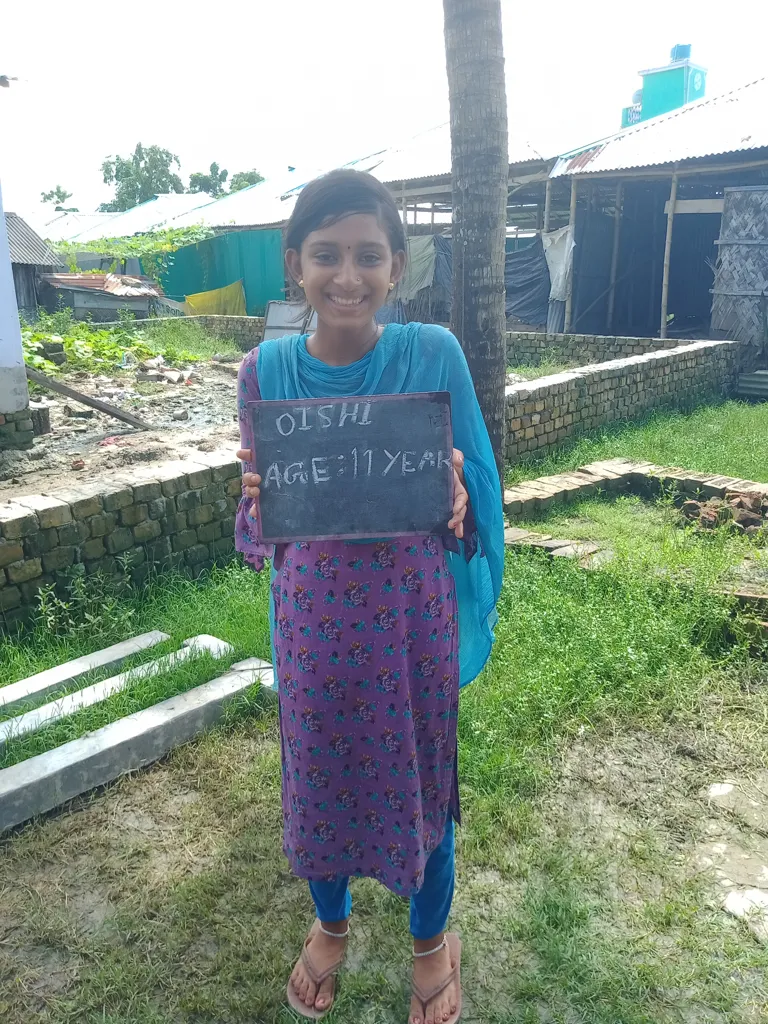 OISHI
AGE:11 YEAR